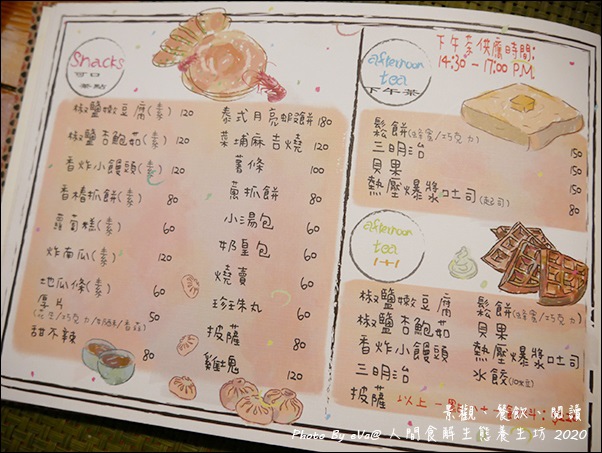 Snacks
可口
茶點
椒鹽嫩豆腐(素) 120
椒鹽杏鮑菇(素) 120
香炸小饅頭(素) 120
香椿抓餅(素) 80
蘿蔔糕(素) 60
炸南瓜(素) 120
地瓜條(素) 60
厚片 50
甜不辣 80
泰式月亮蝦餅 180
菜埔麻吉燒 120
薯條 100
蔥抓餅 80
小湯包 60
奶皇包 60
燒賣 60
珍珠丸 60
披薩 80
雞塊 120
afternoon
tea
下午茶
下午茶供應時間:
14:30 - 17:00 P.M.
鬆餅(蜂蜜/巧克力) 150
三明治 150
貝果 150
熱壓爆漿吐司(起司) 80
afternoon
tea
1+1
椒鹽嫩豆腐
椒鹽杏鮑菇
香炸小饅頭
三明治
披薩
鬆餅(蜂蜜/巧克力)
貝果
熱壓爆漿吐司
水餃
以上一
景觀‧餐飲‧閱讀
Photo By eVa@ 人間食解生態養生坊 2020